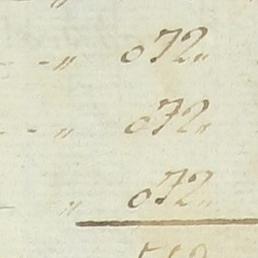 - - „ 072„
- - „ 072„
- „ 072„